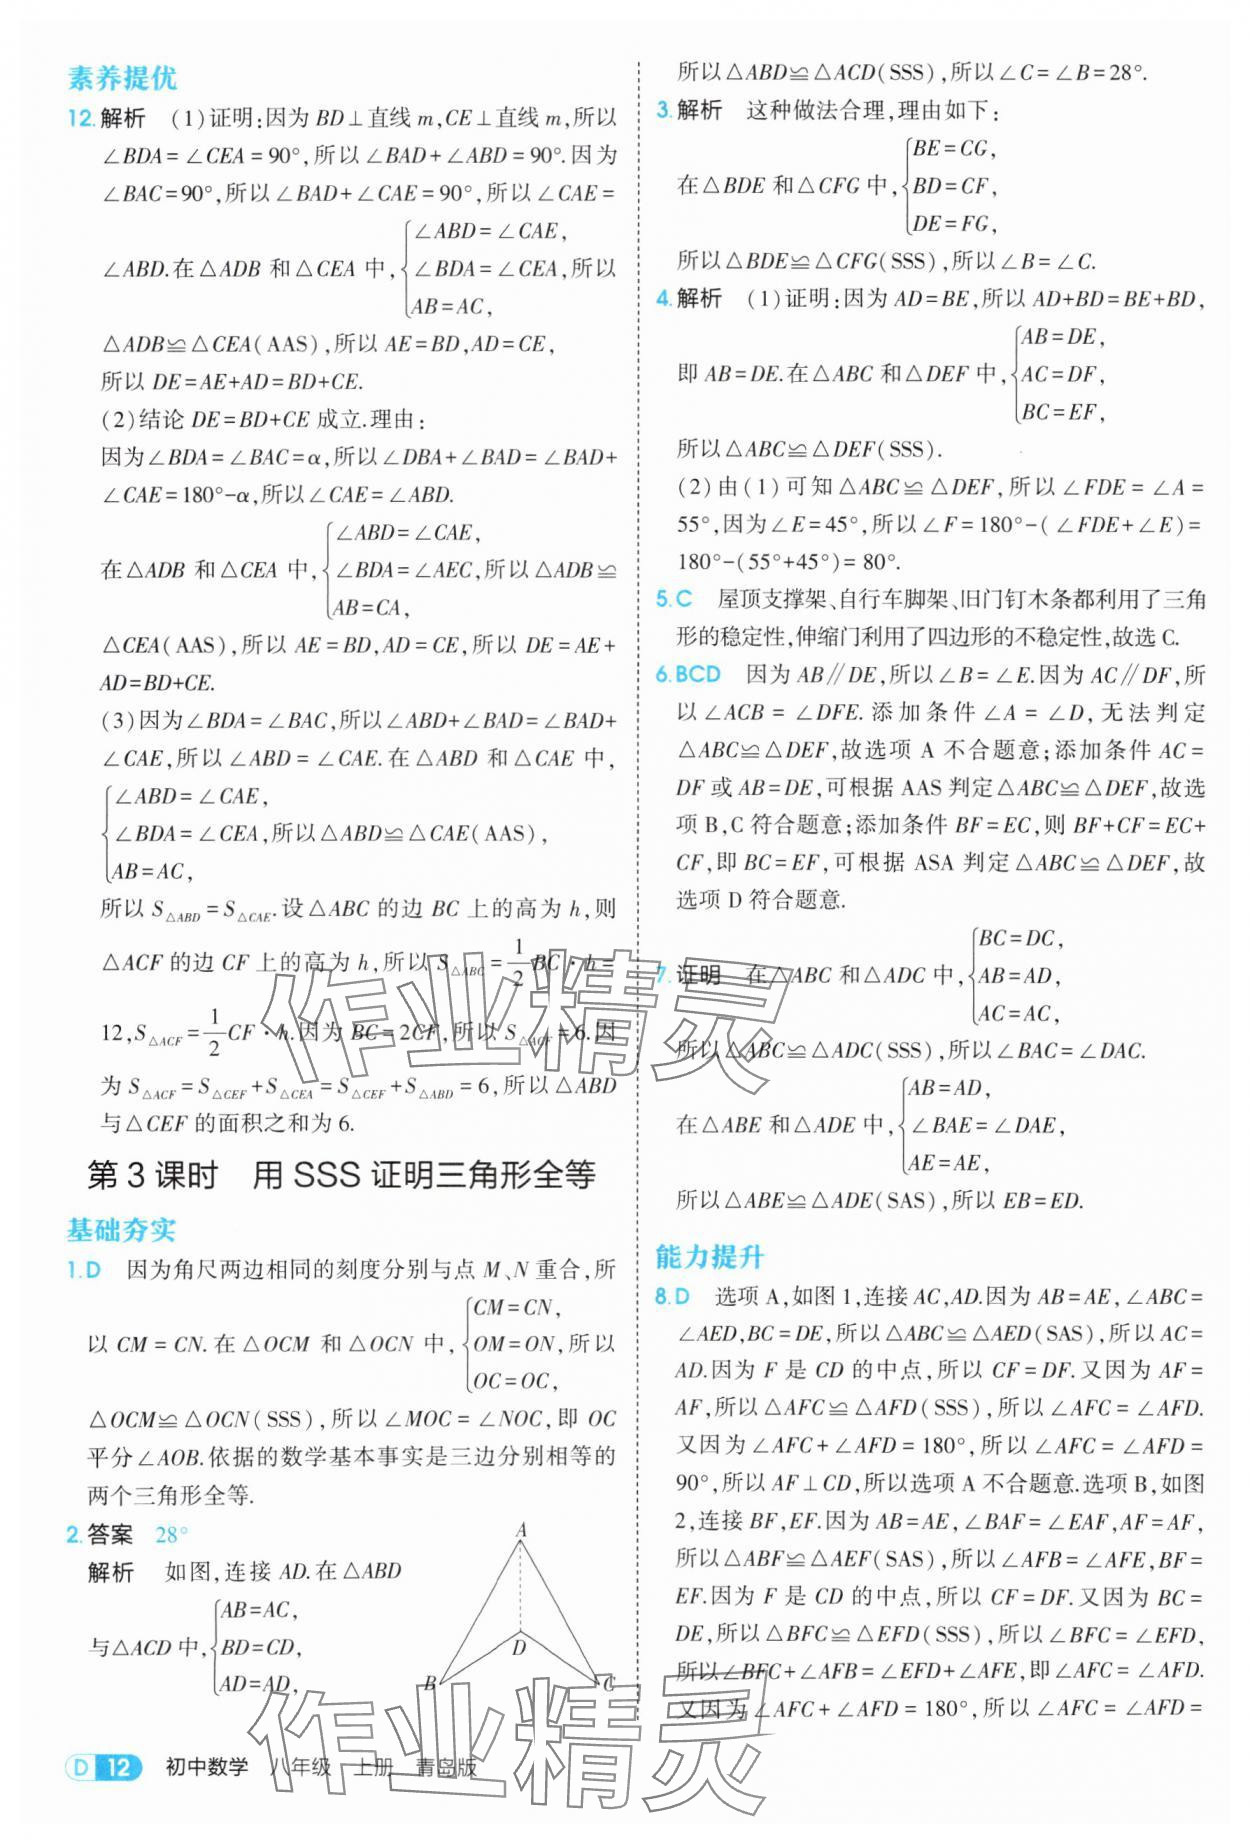 素养提优
12.解析 (1)证明:因为 BD⊥直线 m,CE⊥直线 m,所以
∠BDA=∠CEA=90°,所以∠BAD+∠ABD=90°.因为
∠BAC=90°,所以∠BAD+∠CAE=90°,所以∠CAE=
∠ABD.在△ADB 和△CEA 中,{∠ABD=∠CAE,
∠BDA=∠CEA,所以
AB=AC,
△ADB≌△CEA(AAS),所以 AE=BD,AD=CE,
所以 DE=AE+AD=BD+CE.
(2)结论 DE=BD+CE 成立.理由:
因为∠BDA=∠BAC=α,所以∠DBA+∠BAD=∠BAD+
∠CAE=180°-α,所以∠CAE=∠ABD.
在△ADB 和△CEA 中,{∠ABD=∠CAE,
∠BDA=∠AEC,所以△ADB≌
AB=CA,
△CEA(AAS),所以 AE=BD,AD=CE,所以 DE=AE+
AD=BD+CE.
(3)因为∠BDA=∠BAC,所以∠ABD+∠BAD=∠BAD+
∠CAE,所以∠ABD=∠CAE.在△ABD 和△CAE 中,
{∠ABD=∠CAE,
∠BDA=∠CEA,所以△ABD≌△CAE(AAS),
AB=AC,
所以 S△ABD=S△CAE.设△ABC 的边 BC 上的高为 h,则
△ACF 的边 CF 上的高为 h,所以 S△ABC=1/2 BC·h=
12,S△ACF=1/2 CF·h.因为 BC=2CF,所以 S△ACF=6.因
为 S△ACF=S△CEF+S△CEA=S△CEF+S△ABD=6,所以△ABD
与△CEF 的面积之和为 6.
第 3 课时 用 SSS 证明三角形全等
基础夯实
1.D 因为角尺两边相同的刻度分别与点 M、N 重合,所
以 CM=CN.在△OCM 和△OCN 中,{CM=CN,
OM=ON,所以
OC=OC,
△OCM≌△OCN(SSS),所以∠MOC=∠NOC,即 OC
平分∠AOB.依据的数学基本事实是三边分别相等的
两个三角形全等.
2.答案 28°
解析 如图,连接 AD.在△ABD
与△ACD 中,{AB=AC,
BD=CD,
AD=AD,
A
D
B
C
所以△ABD≌△ACD(SSS),所以∠C=∠B=28°.
3.解析 这种做法合理,理由如下:
在△BDE 和△CFG 中,{BE=CG,
BD=CF,
DE=FG,
所以△BDE≌△CFG(SSS),所以∠B=∠C.
4.解析 (1)证明:因为 AD=BE,所以 AD+BD=BE+BD,
即 AB=DE.在△ABC 和△DEF 中,{AB=DE,
AC=DF,
BC=EF,
所以△ABC≌△DEF(SSS).
(2)由(1)可知△ABC≌△DEF,所以∠FDE=∠A=
55°,因为∠E=45°,所以∠F=180°-(∠FDE+∠E)=
180°-(55°+45°)=80°.
5.C 屋顶支撑架、自行车脚架、旧门钉木条都利用了三角
形的稳定性,伸缩门利用了四边形的不稳定性,故选 C.
6.BCD 因为 AB∥DE,所以∠B=∠E.因为 AC∥DF,所
以∠ACB=∠DFE.添加条件∠A=∠D,无法判定
△ABC≌△DEF,故选项 A 不合题意;添加条件 AC=
DF 或 AB=DE,可根据 AAS 判定△ABC≌△DEF,故选
项 B,C 符合题意;添加条件 BF=EC,则 BF+CF=EC+
CF,即 BC=EF,可根据 ASA 判定△ABC≌△DEF,故
选项 D 符合题意.
7.证明 在△ABC 和△ADC 中,{BC=DC,
AB=AD,
AC=AC,
所以△ABC≌△ADC(SSS),所以∠BAC=∠DAC.
在△ABE 和△ADE 中,{AB=AD,
∠BAE=∠DAE,
AE=AE,
所以△ABE≌△ADE(SAS),所以 EB=ED.
能力提升
8.D 选项 A,如图 1,连接 AC,AD.因为 AB=AE,∠ABC=
∠AED,BC=DE,所以△ABC≌△AED(SAS),所以 AC=
AD.因为 F 是 CD 的中点,所以 CF=DF.又因为 AF=
AF,所以△AFC≌△AFD(SSS),所以∠AFC=∠AFD.
又因为∠AFC+∠AFD=180°,所以∠AFC=∠AFD=
90°,所以 AF⊥CD,所以选项 A 不合题意.选项 B,如图
2,连接 BF,EF.因为 AB=AE,∠BAF=∠EAF,AF=AF,
所以△ABF≌△AEF(SAS),所以∠AFB=∠AFE,BF=
EF.因为 F 是 CD 的中点,所以 CF=DF.又因为 BC=
DE,所以△BFC≌△EFD(SSS),所以∠BFC=∠EFD,
所以∠BFC+∠AFB=∠EFD+∠AFE,即∠AFC=∠AFD.
又因为∠AFC+∠AFD=180°,所以∠AFC=∠AFD=
作业精灵
作业精灵
D 12 初中数学 八年级 上册 青岛版